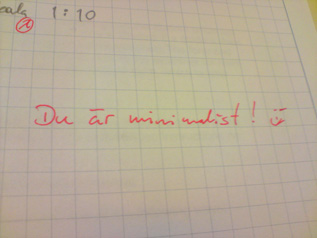 1:10
Du är minimalist! :)